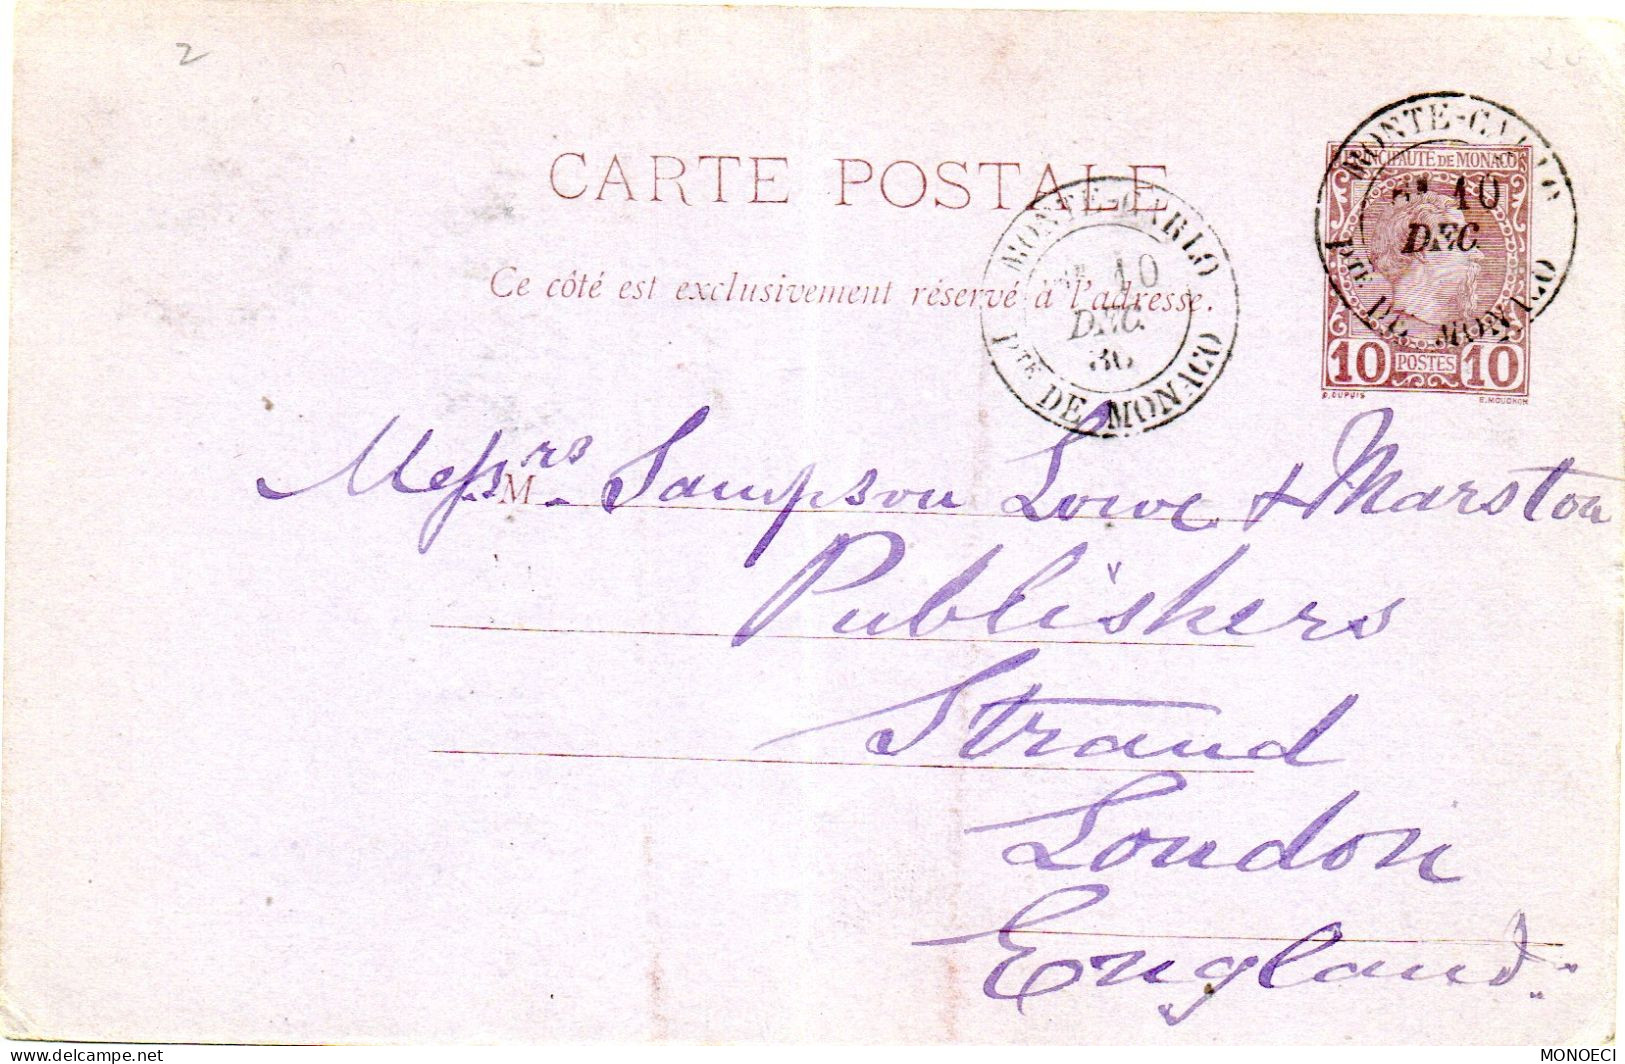 2
CARTE POSTALE
Ce côté est exclusivement réservé à l'adresse.
MONTE-CARLO
10
DEC.
86
PTE DE MONACO
MONTE-CARLO
10
DEC.
PTE DE MONACO
PRINCIPAUTE DE MONACO
10 POSTES 10
D. DUPUIS E. MOUCHON
M
Messrs Sampson Lowe & Marston
Publishers
Strand
London
England.
www.delcampe.net
MONOECI